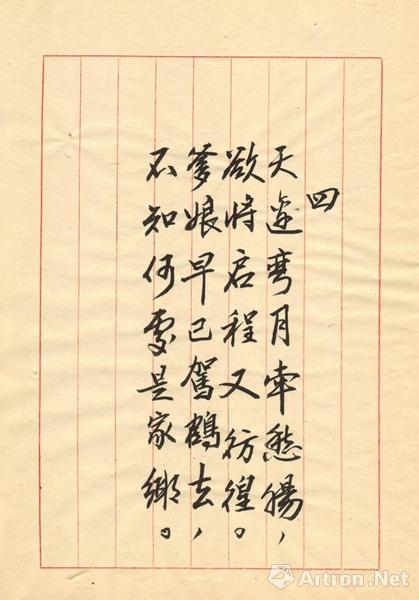 四
天边弯月牵愁肠，
欲将启程又彷徨。
爹娘早已驾鹤去，
不知何处是家鄉。
Artron.Net